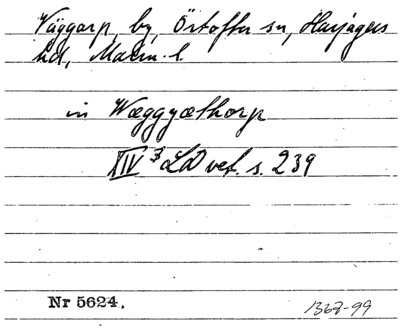 Väggarp, by, Örtofta sn, Harjagers
hd, Malm. l.
in Wæggyæthorp
XIV 3/4 LD vet. s. 239
Nr 5624.
1368-99